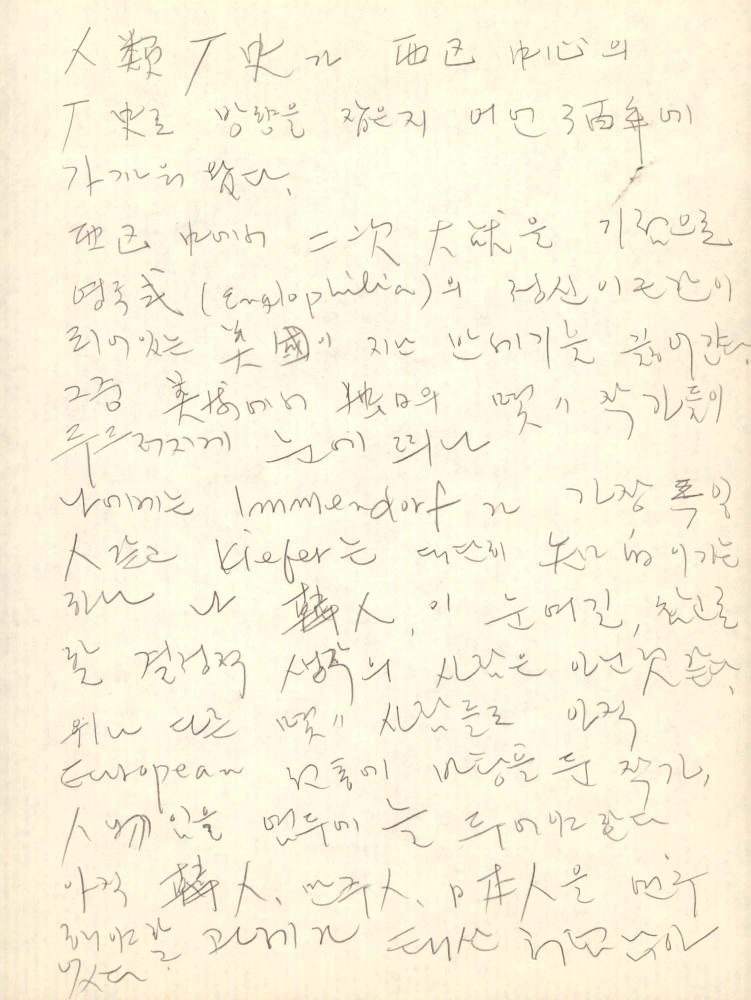 人類 厂史가 西区 中心의
厂史로 방향을 잡은지 어언 3百年에
가까워 왔다.
西区 中에서 二次 大戰을 기점으로
영국式 (Englophilia)의 정신이 근간이
되어있는 美國이 지난 반세기를 끌어간다.
그중 美術에서 独日의 몇〃 작가들이
두드러지게 눈에 띄나
나에게는 Immendorf 가 가장 독일
人 같고 Kiefer는 대단히 知的이기는
하나 나 韓人, 이 눈여길, 참고로
할 결정적 생각의 사람은 아닌것 같다.
뭐니 다른 몇〃 사람들도 아직
European 전통에 바탕을 둔 작가,
人物임을 염두에 늘 두어야 한다
아직 韓人, 만주人, 日本人을 연구
해야 할 과제가 태산처럼 남아
있다.